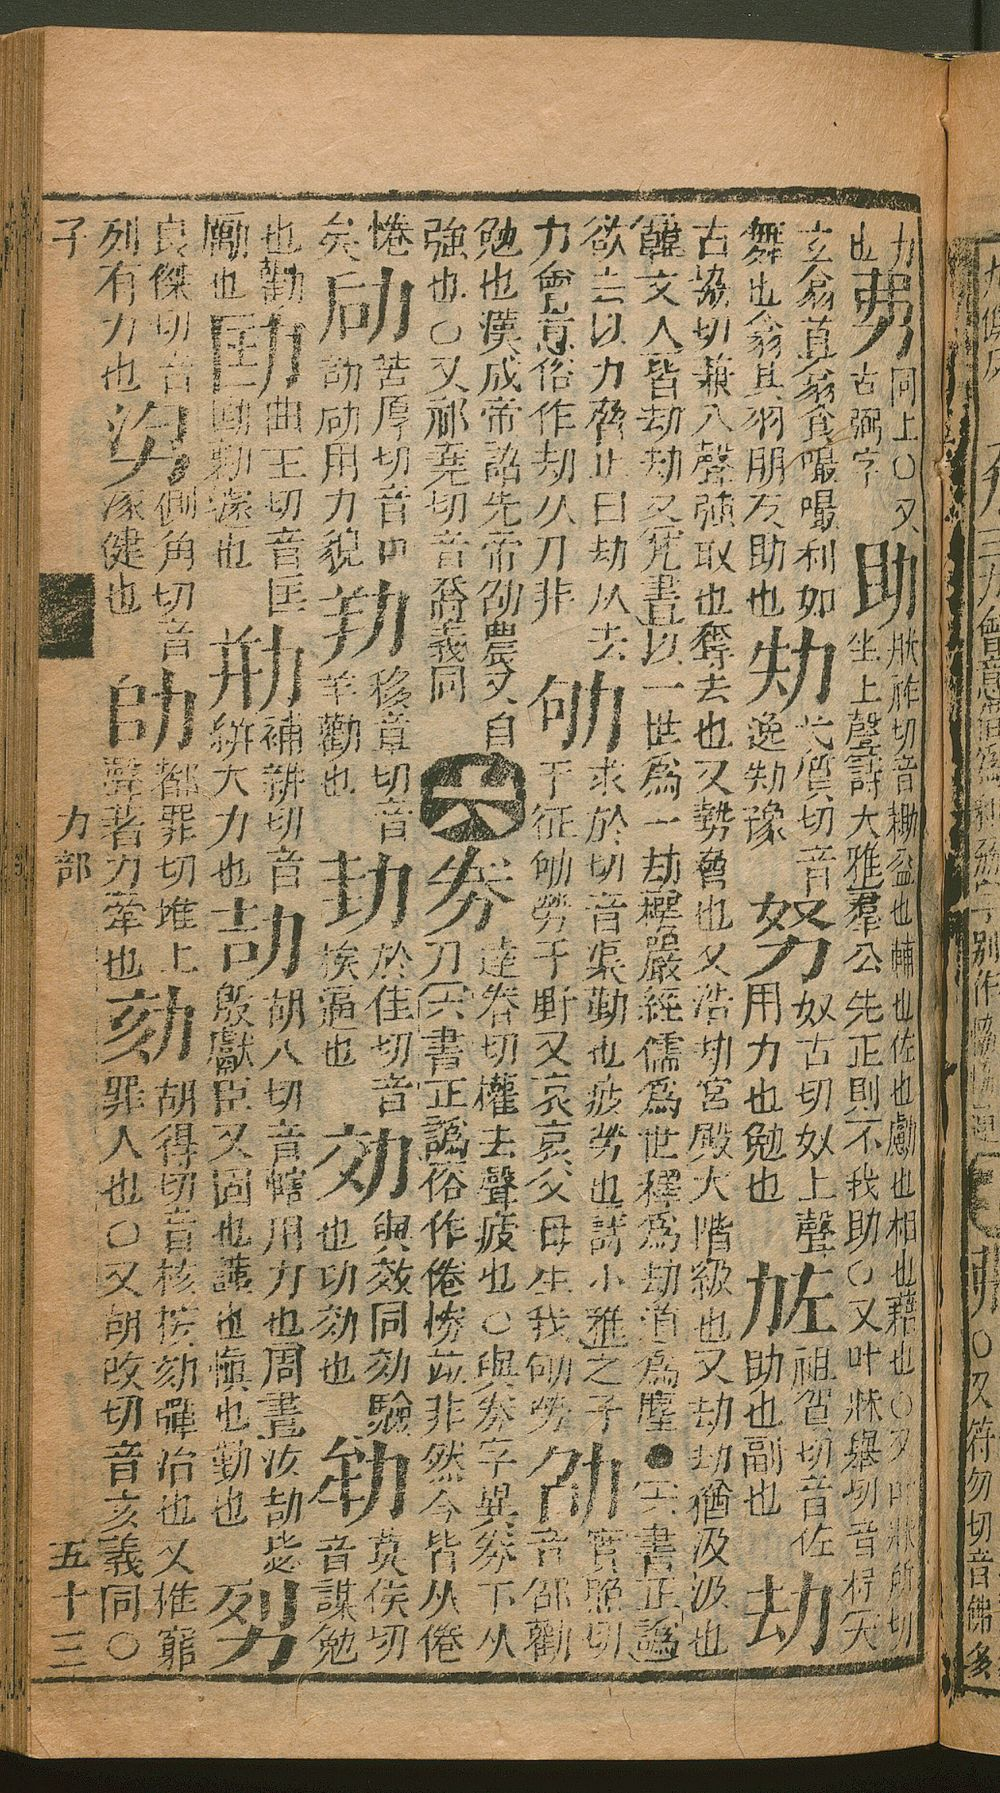 力也同上○又古弼字助牀祚切音耡益也輔也佐也勵也相也藉也○又叶牀所切坐上聲詩大雅羣公先正則不我助○又叶牀舉切音杼天
玄翁食嘬嘬利如舞也翁具羽朋友助也劮弋質切音逸劮豫努奴古切奴上聲用力也勉也祖賀切音佐助也副也劫
古協切兼入聲強取也奪去也又勢脅也又浩劫宮殿大階級也又劫劫猶汲汲也韓文人皆劫劫又梵書以一世為一劫楞嚴經儒為世釋為劫道為塵●六書正譌
欲去以力脅止曰劫从去力會意俗作刼从刀非劬求於切音渠勤也疲勞也詩小雅之子于征劬勞于野又哀哀父母生我劬勞劭實照切音邵勸
勉也漢成帝詔先帝劭農又自強也○又祁堯切音喬義同六劵逵眷切權去聲疲也○與券字異券下从刀六書正譌俗作倦惓竝非然今皆从倦
惓矣劶苦厚切音叩劼劶用力貌移章切音羊勸也於佳切音挨逼也効與效同効驗也功効也劺莫侯切音謀勉
也勸勵也劻曲王切音匡劻勷遽也補辦切音絣大力也劼胡八切音轄用力也周書汝劼毖殷獻臣又固也謹也慎也勤也
良傑切音列有力也側角切音涿健也都罪切堆上聲著力牽也劾胡得切音核按劾彈治也又推窮罪人也○又胡改切音亥義同○
子
力部
五十三